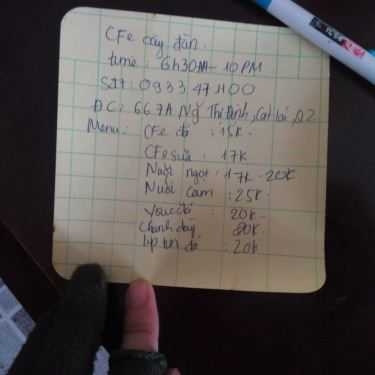 CFe cây đàn.
time: 6h30AM - 10PM
SĐT: 0933 47 1100
Đ.C: 667A Ng Thị Định, Cát Lái, Q2
Menu: CFe đá : 15k.
CFe sữa : 17k
Nước ngọt : 17k - 20k
Nước Cam : 25k
: 20k
Chanh dây : 20k
lipton đá : 20k